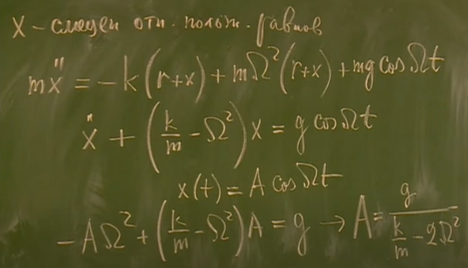 x – смещен отн. полож. равнов
mẍ = -k(r+x) + mΩ²(r+x) + mg cos Ωt
ẍ + (k/m - Ω²) x = g cos Ωt
x(t) = A cos Ωt
-AΩ² + (k/m - Ω²) A = g → A = g/(k/m - 2Ω²)